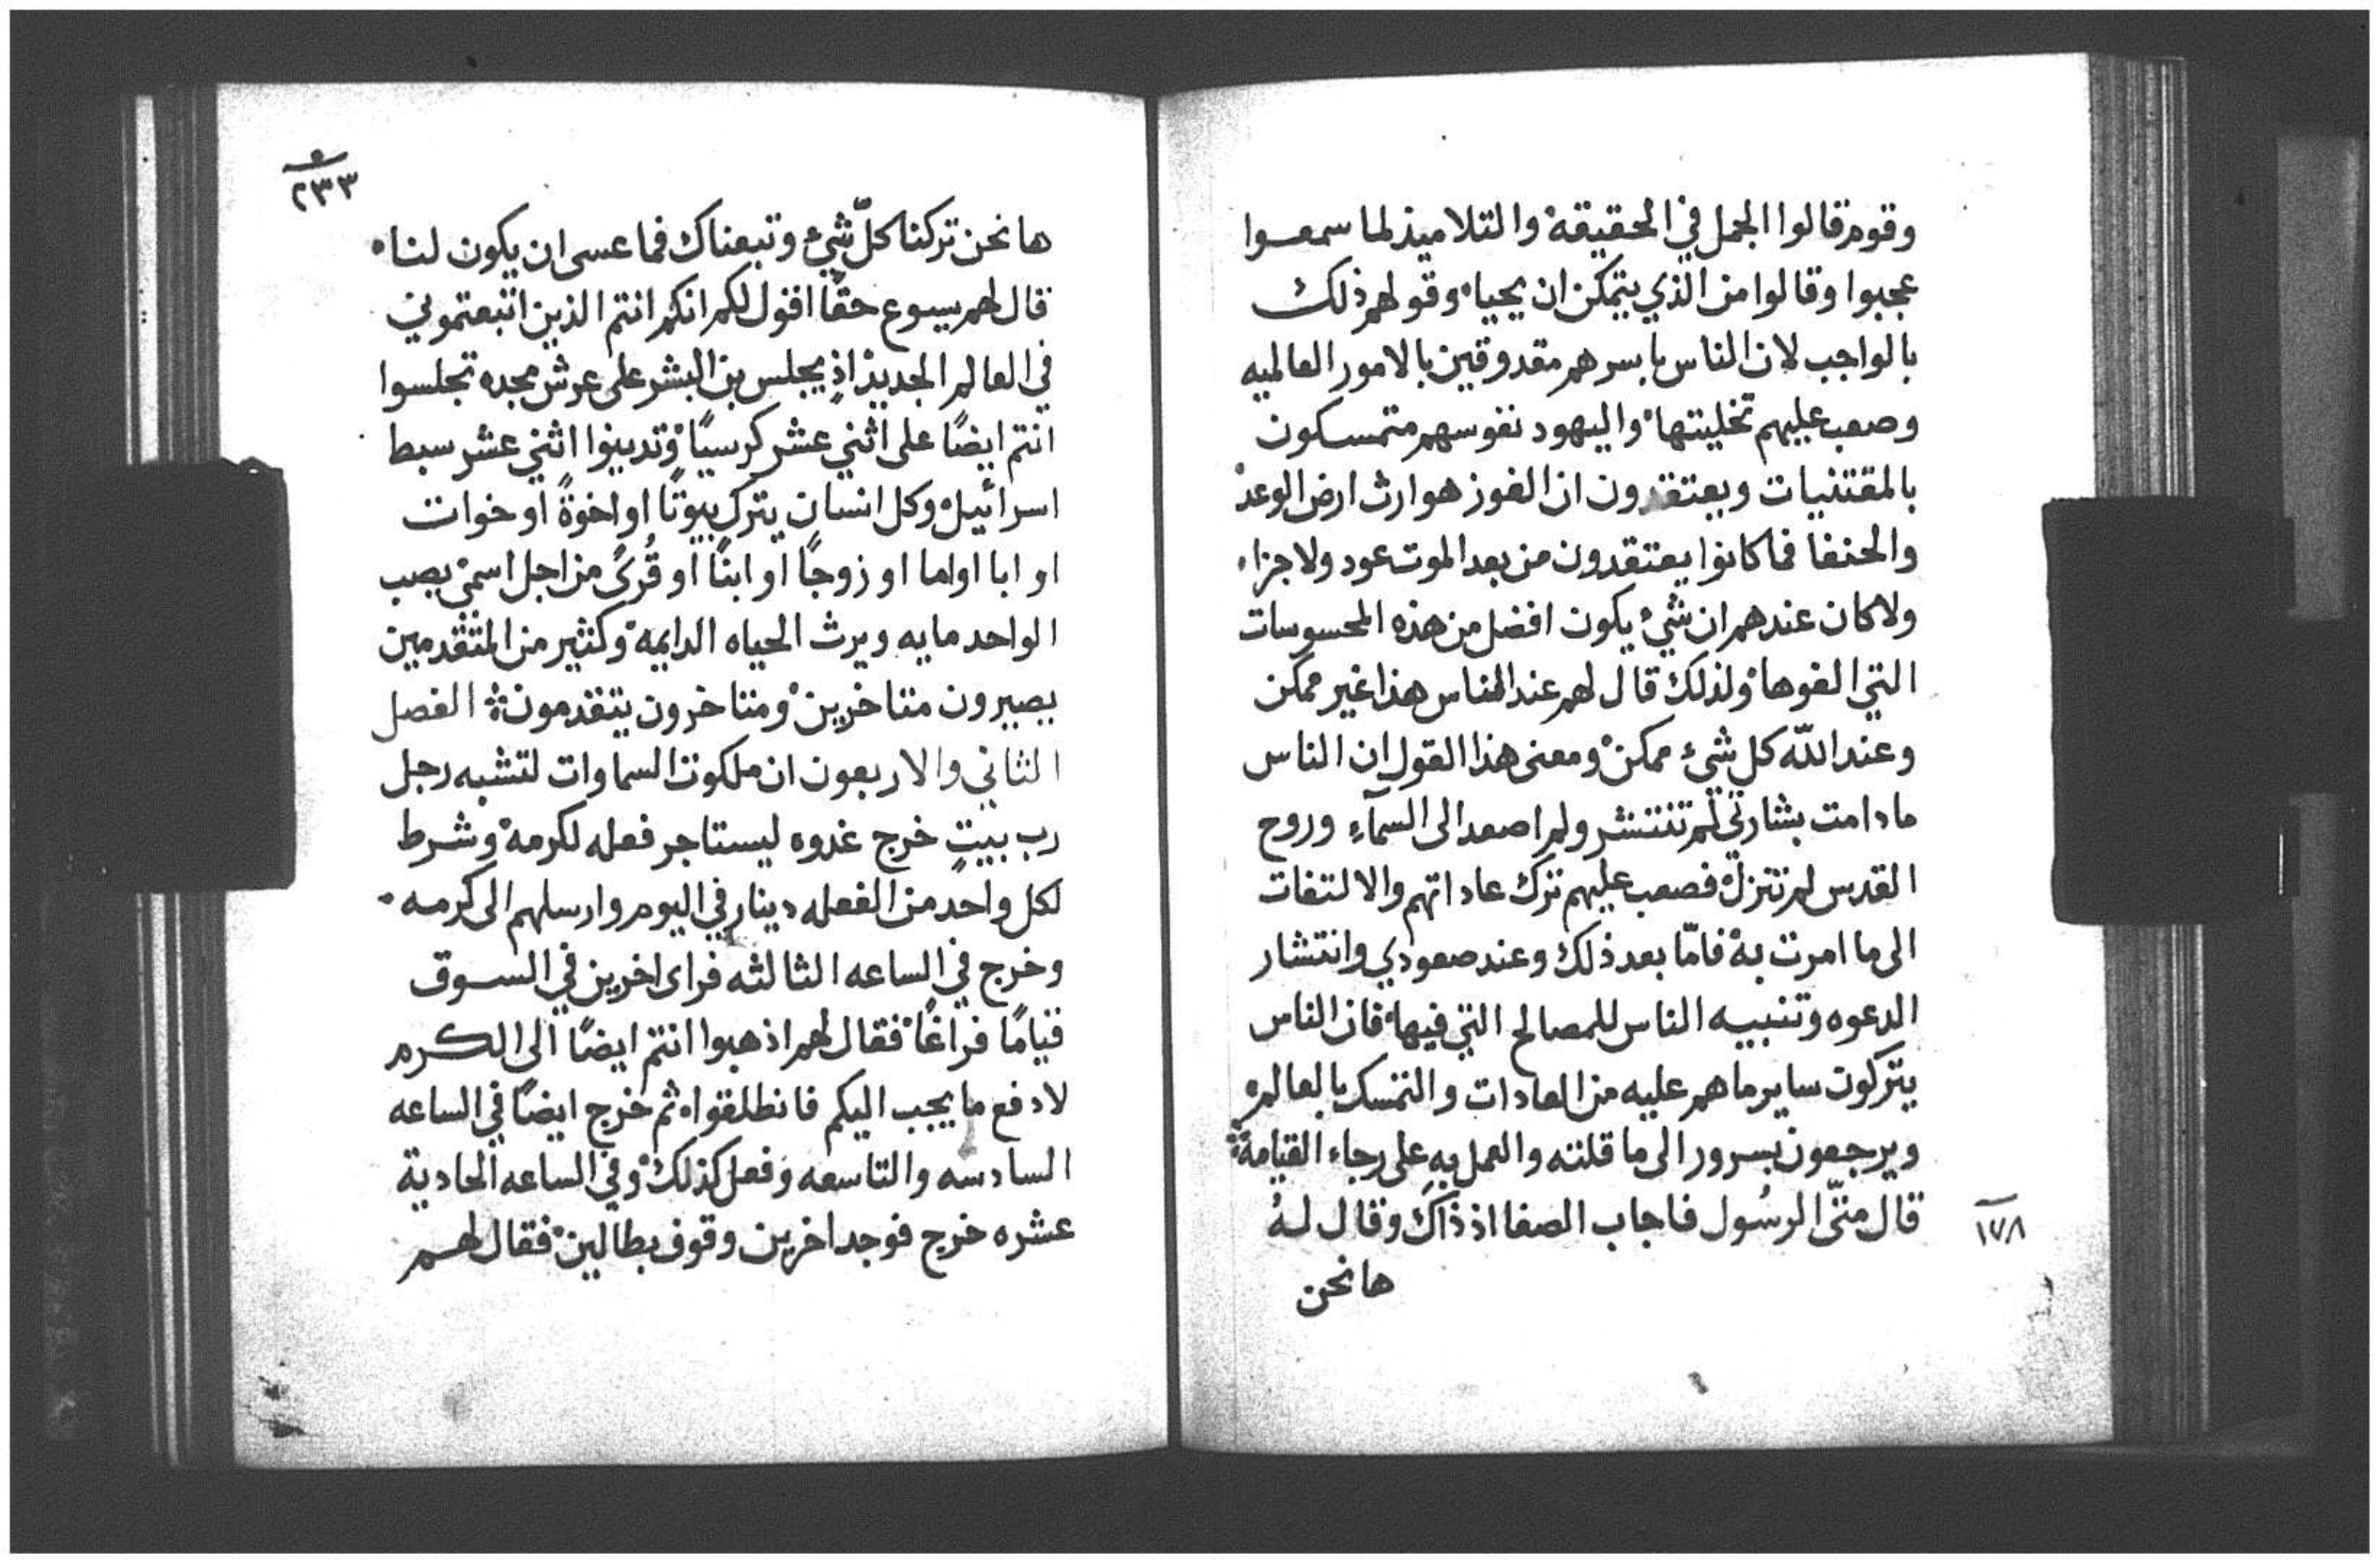 وقوم قالوا الجمل في الحقيقة والتلاميذ لما سمعوا
عجبوا وقالوا من الذي يتمكن ان يحيا وقولهم ذلك
بالواجب لان الناس باسرهم مقدوقين بالامور العالميه
وصعب عليهم تخليتها واليهود نفوسهم متمسكون
بالمقتنيات ويعتقدون ان الفوز هو ارث ارض الوعد
والحنفا فما كانوا يعتقدون من بعد الموت عود ولا جزاء
ولا كان عندهم ان شيء يكون افضل من هذه المحسوسات
التي الفوها ولذلك قال لهم عند الناس هذا غير ممكن
وعند الله كل شيء ممكن ومعنى هذا القول ان الناس
ما دامت بشارتي لم تنتشر ولم اصعد الى السمآء وروح
القدس لم تنزل فصعب عليهم ترك عاداتهم والالتفات
الى ما امرت به فامّا بعد ذلك وعند صعودي وانتشار
الدعوه وتنبيه الناس للمصالح التي فيها فان الناس
يتركون ساير ما هم عليه من العادات والتمسك بالعالم
ويرجعون بسرور الى ما قلته والعمل به على رجاء القيامة
قال متّى الرسُول فاجاب الصفا اذ ذاك وقال لهُ
١٧٨
ها نحن
٢٣٣
ها نحن تركنا كلّ شيء وتبعناك فما عسى ان يكون لنا
قال لهم يسوع حقًا اقول لكم انكم انتم الذين اتبعتموني
في العالم الجديد اذ يجلس بن البشر على عرش مجده تجلسوا
انتم ايضًا على اثني عشر كرسيًا وتدينوا اثني عشر سبط
اسرائيل وكل انسان يترك بيوتًا او اخوةً او خوات
او ابا او اما او زوجًا او ابنًا او قُرىً من اجل اسمي يصب
الواحد مايه ويرث الحياه الدايمة وكثير من المتقدمين
يصيرون متاخرين ومتاخرون يتقدمون الفصل
الثاني والاربعون ان ملكوت السماوات لتشبه رجل
رب بيتٍ خرج غدوه ليستاجر فعله لكرمه وشرط
لكل واحدٍ من الفعله دينار في اليوم وارسلهم الى كرمه
وخرج في الساعه الثالثه فراى اخرين في السوق
قيامًا فراغًا فقال لهم اذهبوا انتم ايضًا الى الكرم
لادفع ما يجب اليكم فانطلقوا ثم خرج ايضًا في الساعه
السادسه والتاسعه وفعل كذلك وفي الساعه الحادية
عشره خرج فوجد اخرين وقوف بطالين فقال لهم